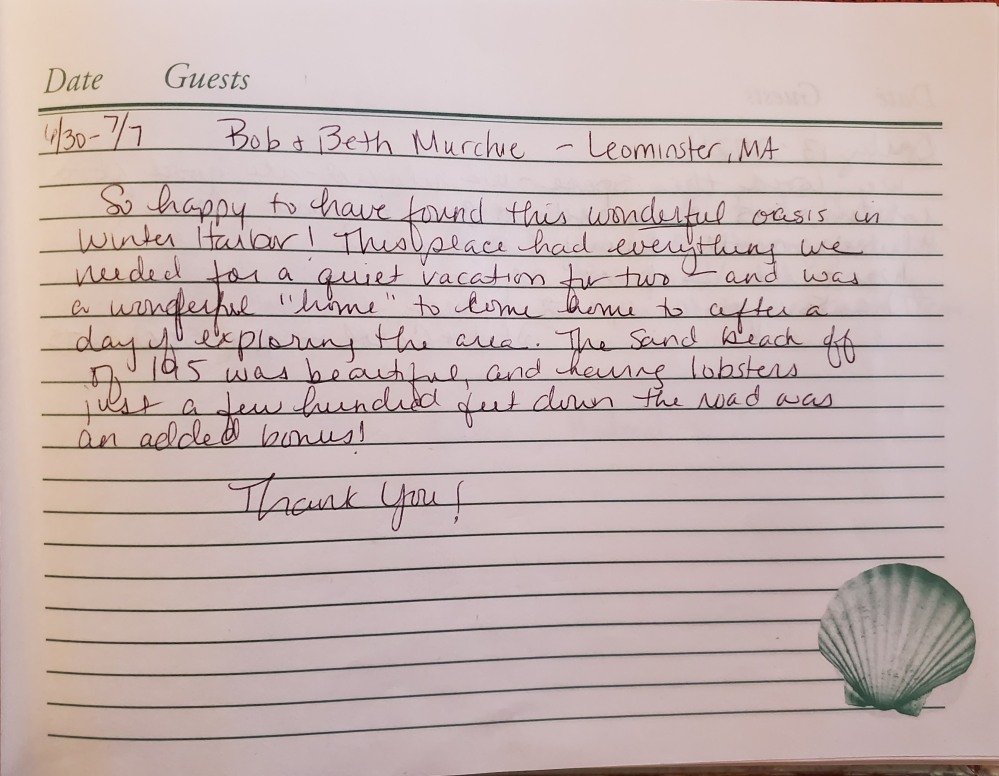 Date Guests
6/30-7/7 Bob & Beth Murchie - Leominster, MA
So happy to have found this wonderful oasis in
Winter Harbor! This place had everything we
needed for a quiet vacation for two - and was
a wonderful "home" to come home to after a
day of exploring the area. The Sand Beach off
of 195 was beautiful, and having lobsters
just a few hundred feet down the road was
an added bonus!
Thank You!